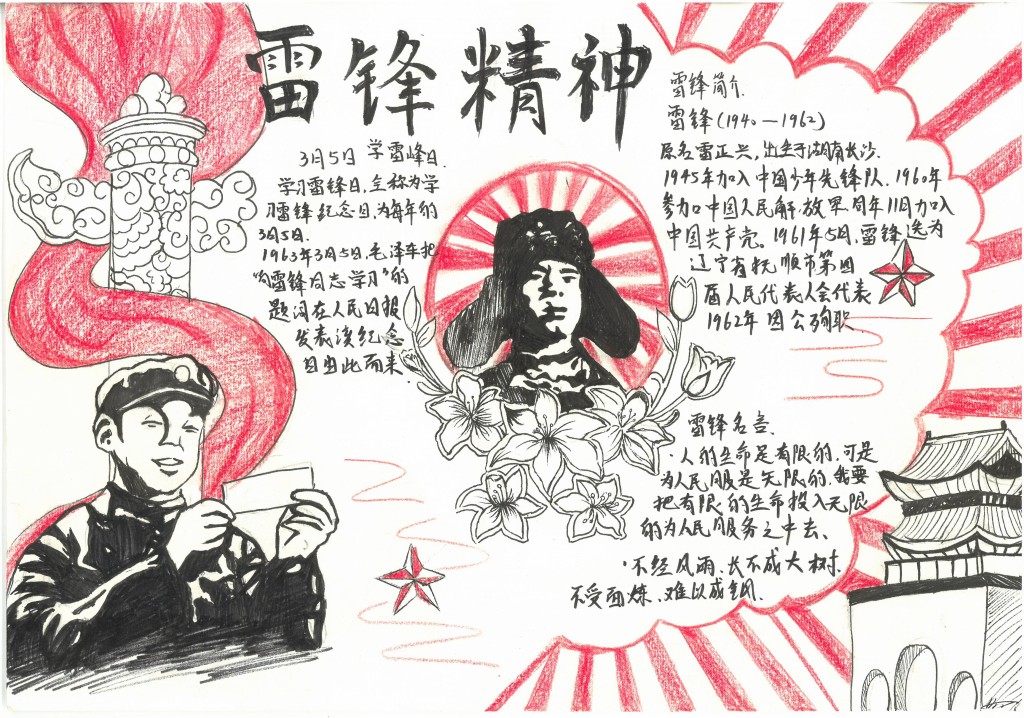 雷锋精神
3月5日 学雷峰日.
学习雷锋日,全称为学
习雷锋纪念日,为每年的
3月5日.
1963年3月5日.毛泽东把
“向雷锋同志学习”的
题词在人民日报
发表该纪念
日由此而来.
雷锋简介.
雷锋(1940—1962)
原名雷正兴,出生于湖南长沙.
1945年加入中国少年先锋队.1960年
参加中国人民解放军.同年11月加入
中国共产党。1961年5月.雷锋选为
辽宁省抚顺市第四
届人民代表人会代表
1962年因公殉职.
雷锋名言、
·人的生命是有限的.可是
为人民服是无限的.我要
把有限的生命投入无限
的为人民服务之中去、
·不经风雨、长不成大树.
不受百炼、难以成钢.